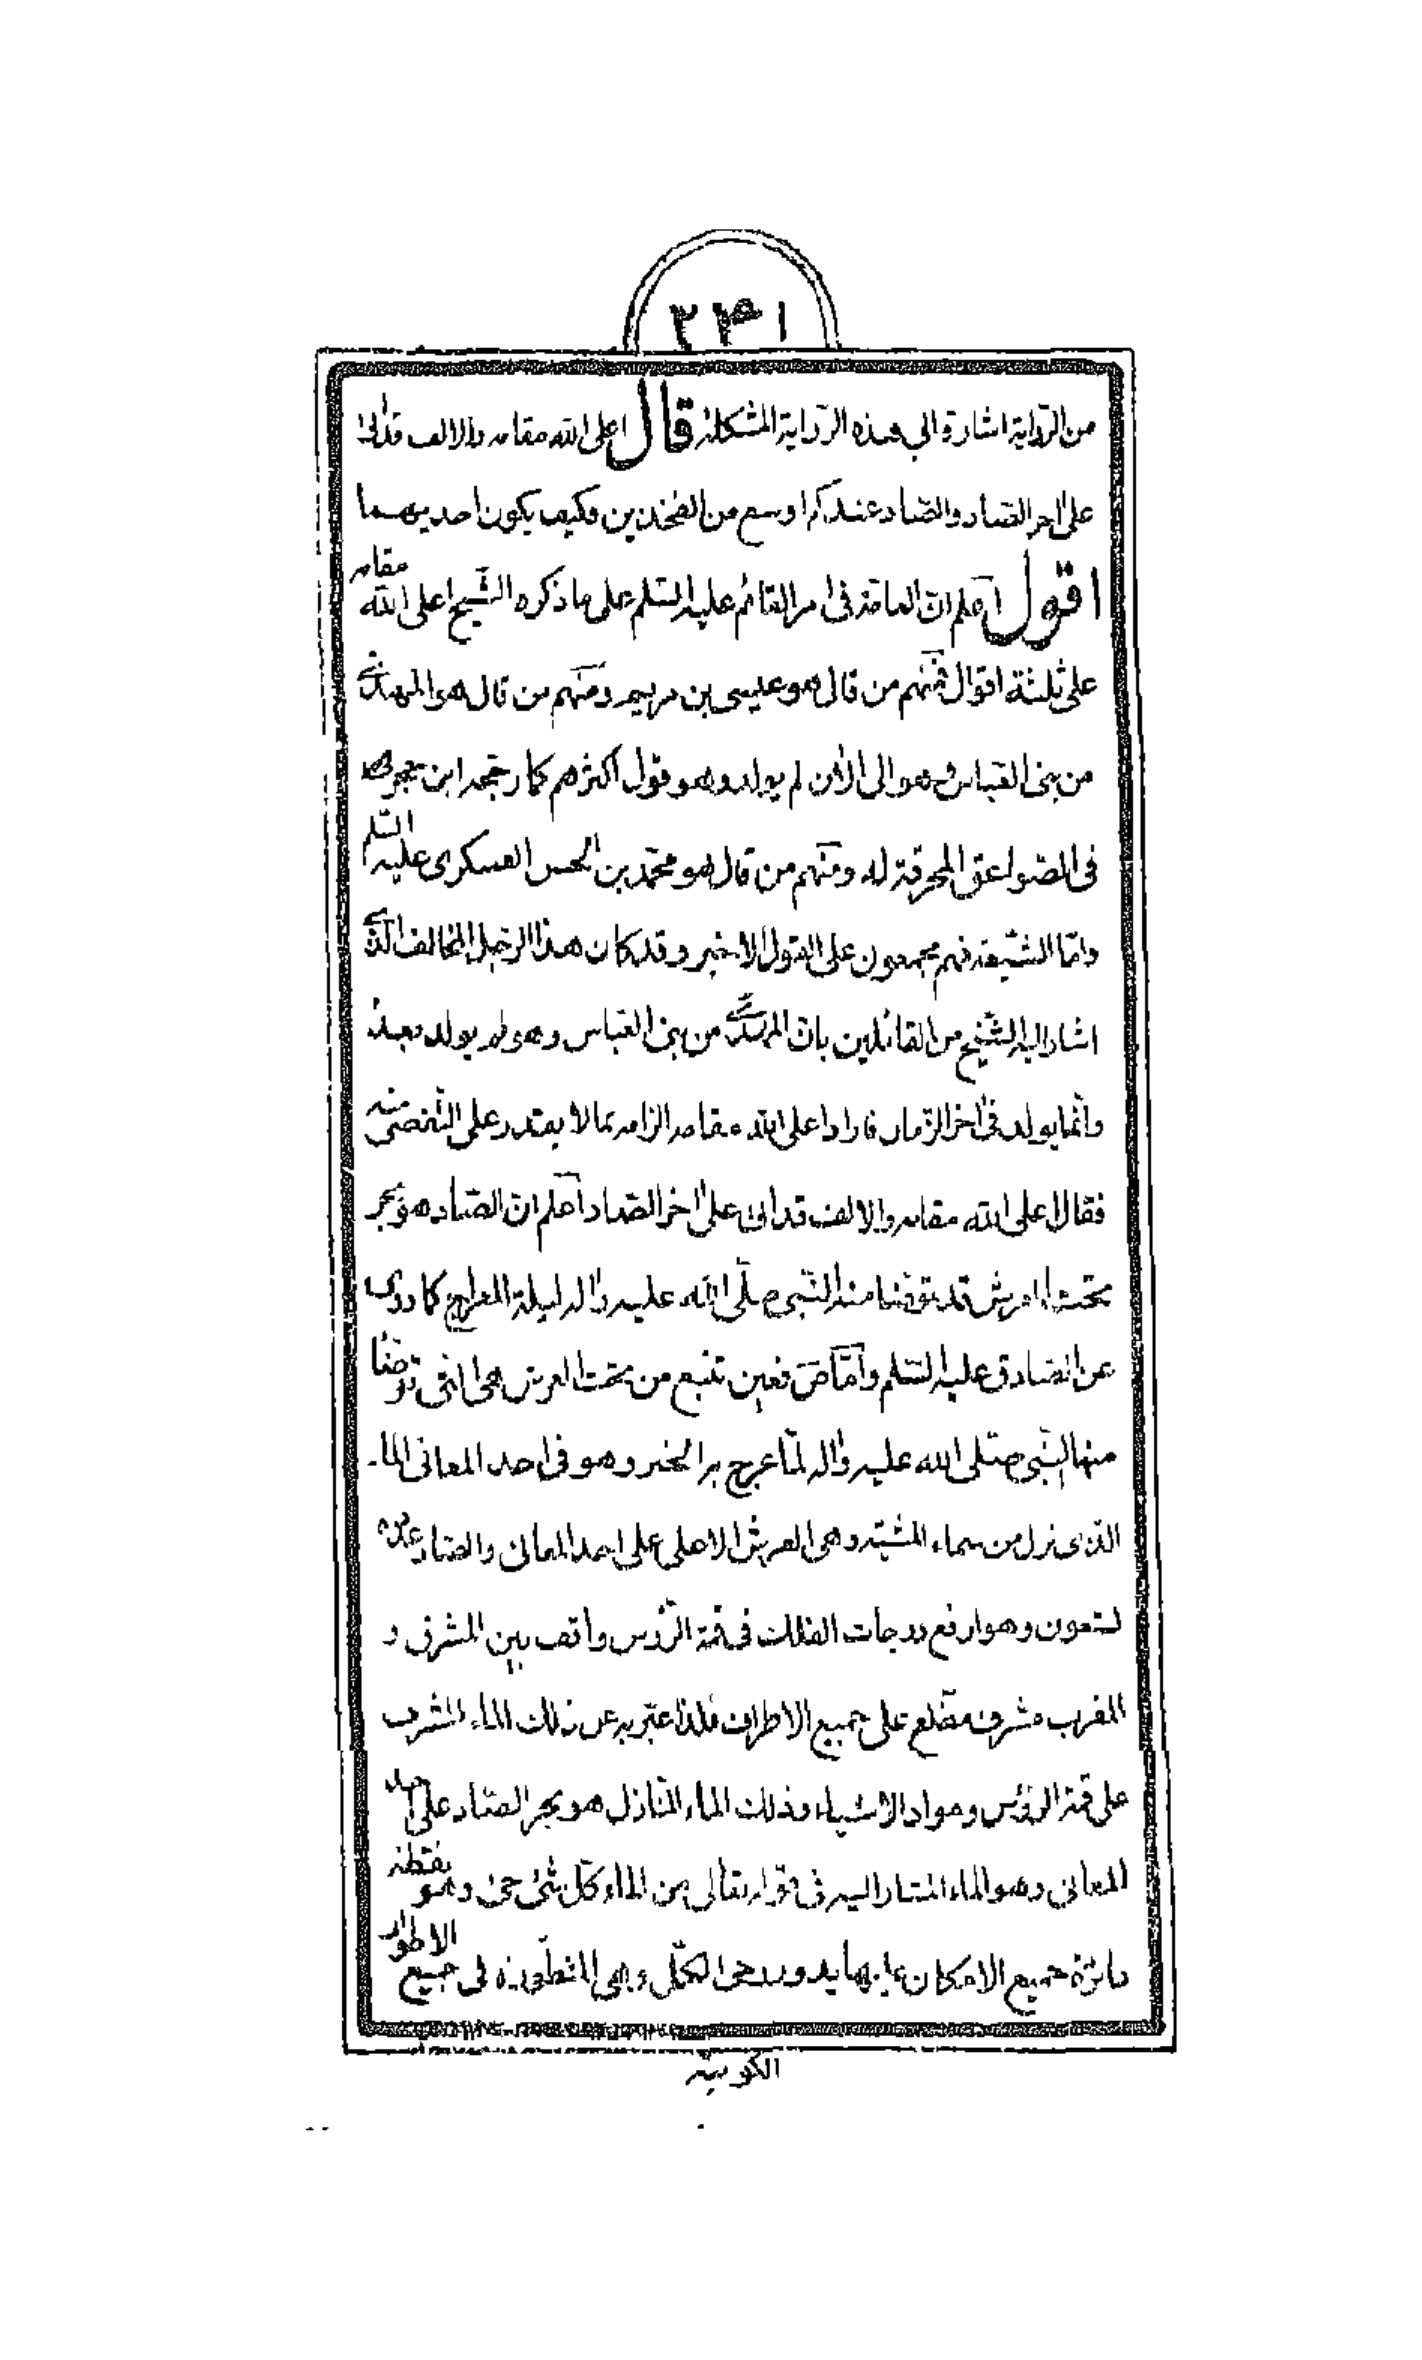 من الرّواية اشارة الى هذه الرّواية المشكلة قال اعلى الله مقامه والالف قد اتى
على اخر الصّاد والصّاد عندكم اوسع من الفخذين فكيف يكون احديهما
اقول اعلم انّ العامّة فى امر القائم عليه السّلم على ما ذكره الشّيخ اعلى الله مقامه
على ثلثة اقوال فمنهم من قال هو عيسى بن مريم ومنهم من قال هو المهدى
من بنى العبّاس وهو الى الان لم يولد وهو قول اكثرهم كما رجّحه ابن حجر
فى الصّواعق المحرقة له ومنهم من قال هو محمّد بن الحسن العسكرى عليه السّلم
وامّا الشّيعة فهم مجمعون على القول الاخير وقد كان هذا الرّجل المخالف الّذى
اشار اليه الشّيخ من القائلين بانّ المهدى من بنى العبّاس وهو لم يولد بعد
وانّما يولد فى اخر الزّمان فاراد اعلى الله مقامه الزامه بما لا يقتدر على التّفصّى منه
فقال اعلى الله مقامه والالف قد اتى على اخر الصّاد اعلم انّ الصّاد هو بحر
تحت العرش قد توضّا منه النّبى صلّى الله عليه واله ليلة المعراج كما روى
عن الصّادق عليه السّلم وامّا ص فعين تنبع من تحت العرش هى الّتى توضّا
منها النّبى صلّى الله عليه واله لمّا عرج به الخبر وهو فى احد المعانى الماء
الّذى نزل من سماء المشيّة وهى العرش الاعلى على احد المعانى والصّاد عدده
تسعون وهو ارفع درجات الفلك فى قمّة الرّؤس واقف بين المشرق و
المغرب مشرف مطّلع على جميع الاطراف فلذا عبّر به عن ذلك الماء المشرف
على قمّة الرّؤس ومواد الاشياء وذلك الماء النّازل هو بحر الصّاد على احد
المعانى وهو الماء المشار اليه فى قوله تعالى من الماء كلّ شئ حىّ وهو نقطة
دائرة جميع الامكان عليها يدور رحى الكلّ وهى المتطوّرة فى جميع الاطوار
الكونيّة